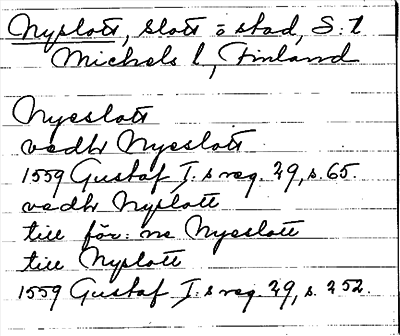 Nyslott, slott o stad, S:t
Michels l, Finland
Nyeslott
vedhr Nyeslott
1559 Gustaf I:s reg. 29, s. 65.
vedhr Nyslott
till för:ne Nyeslott
till Nyslott
1559 Gustaf I:s reg. 29, s. 252.